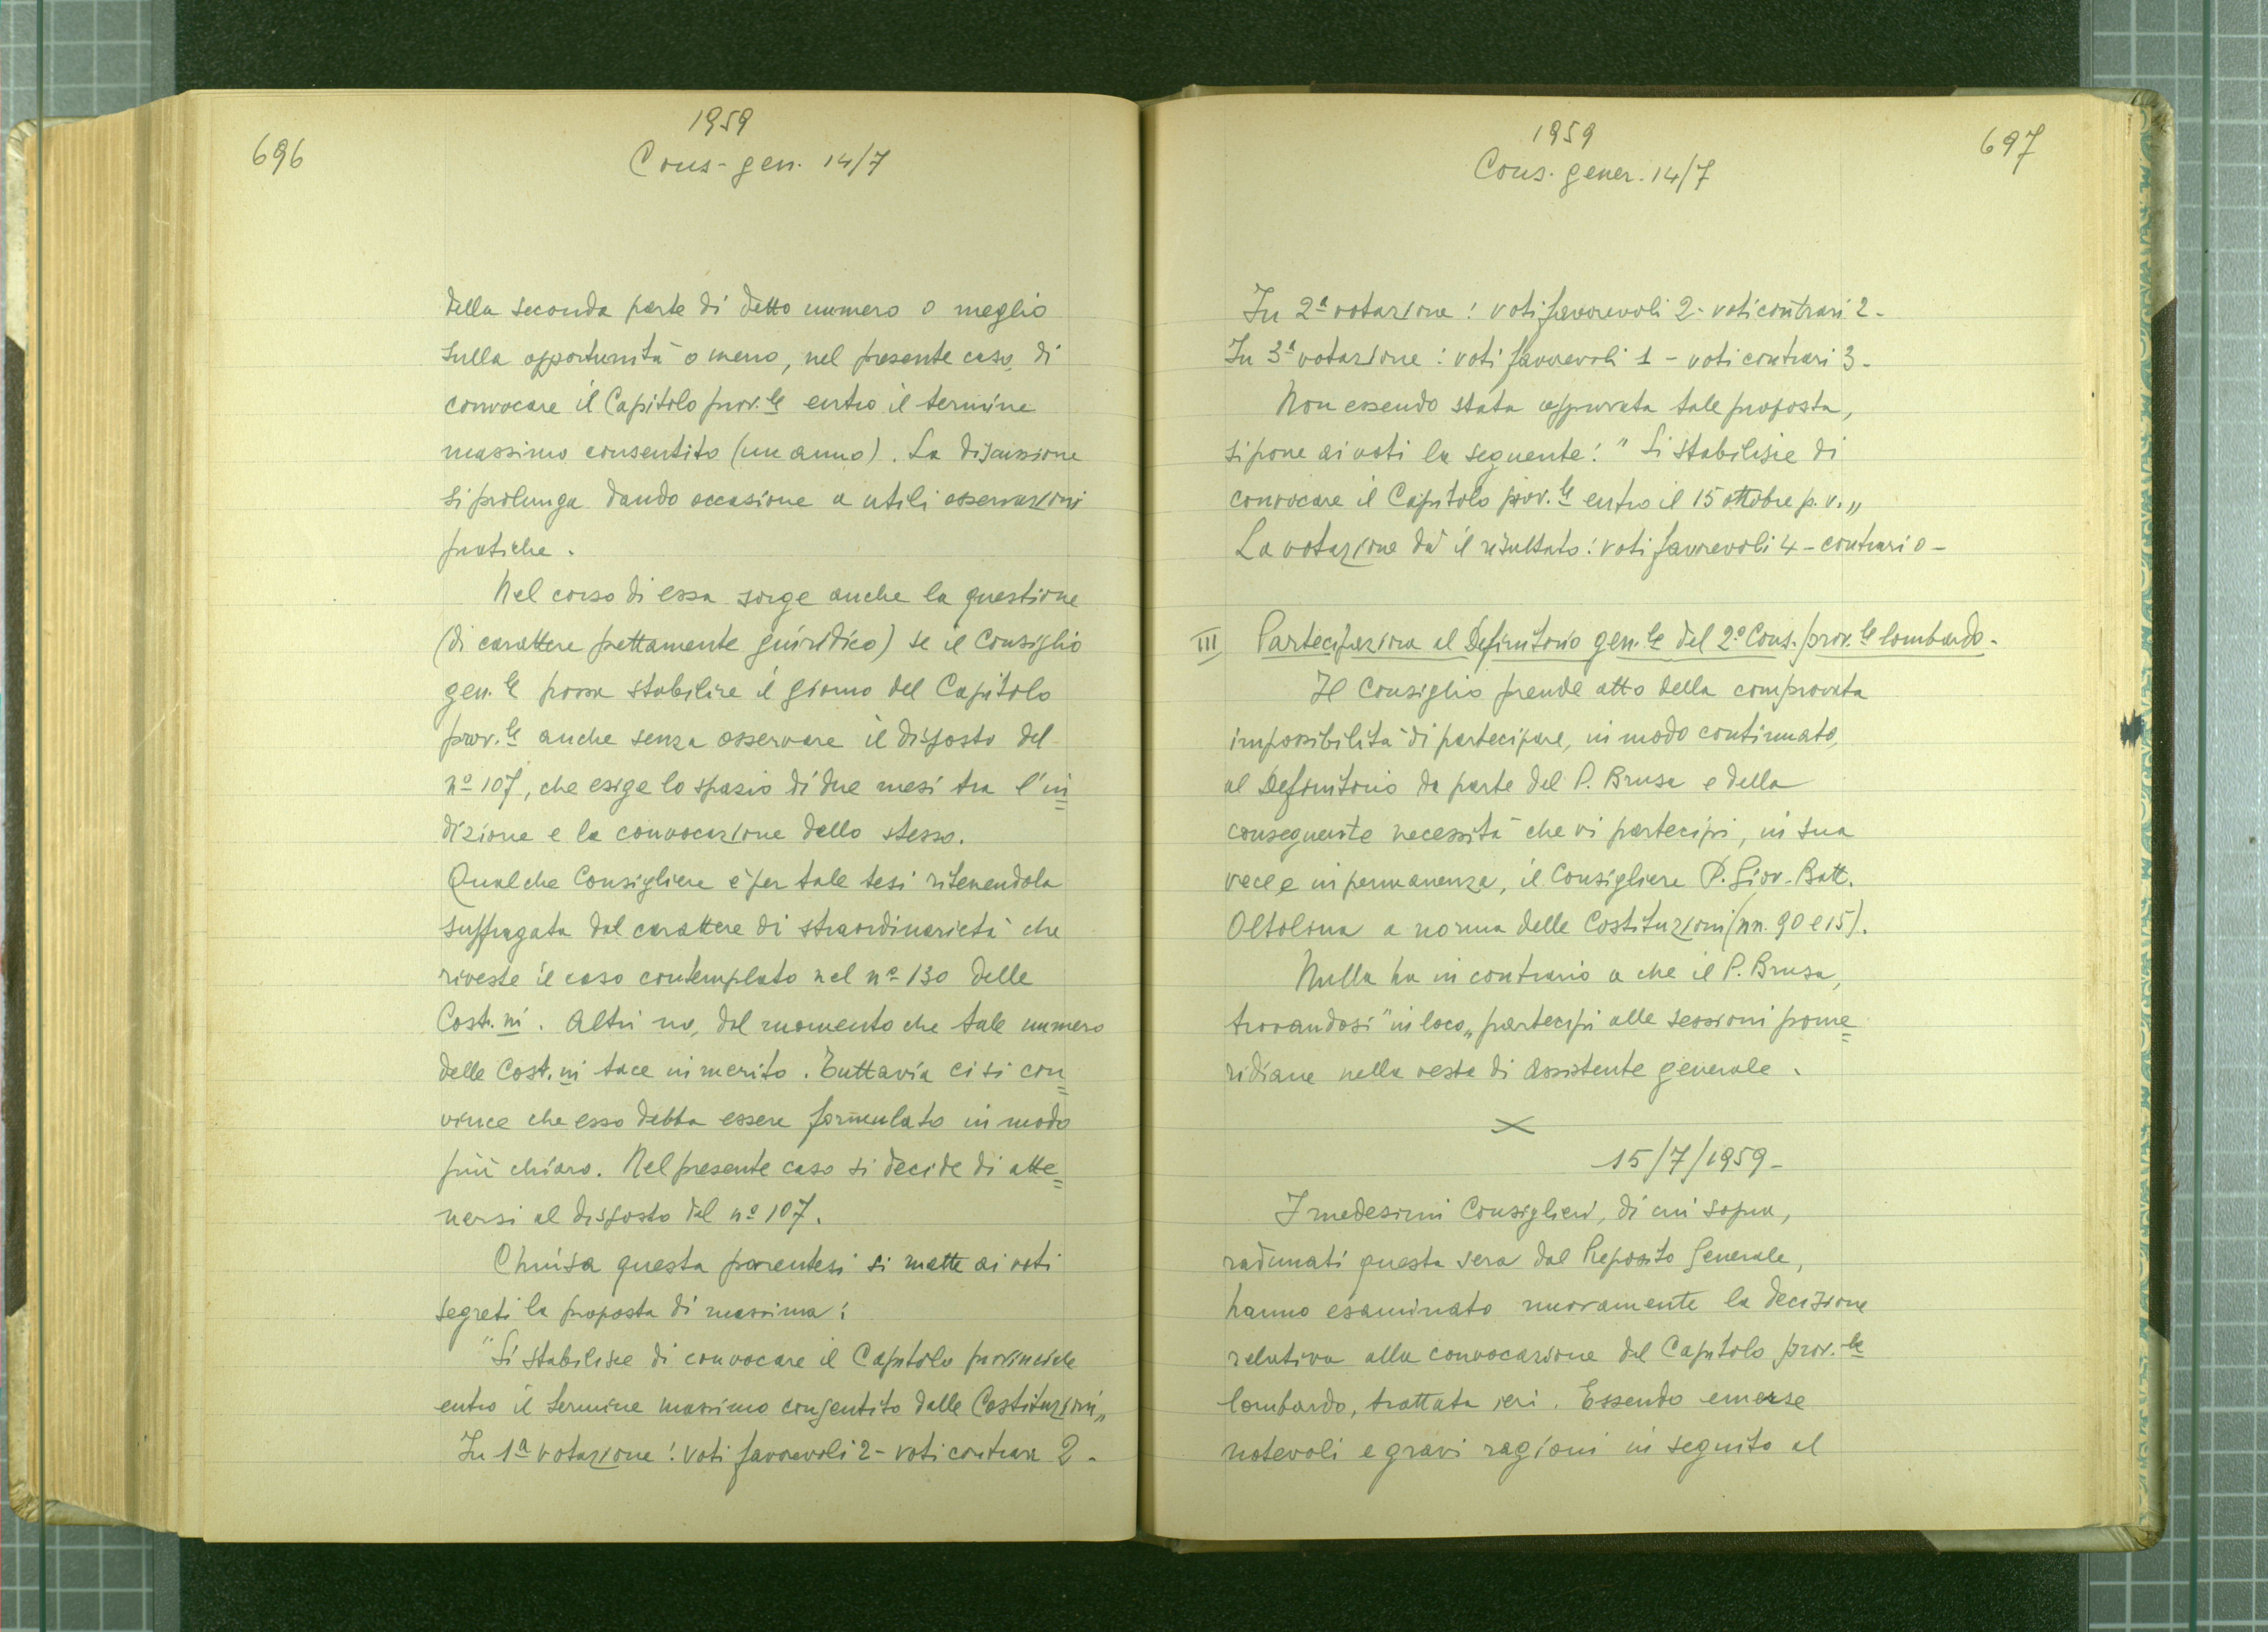 696
1959
Cons-gen. 14/7
della seconda parte di detto numero o meglio
sulla opportunità o meno, nel presente caso, di
convocare il Capitolo prov.le entro il termine
massimo consentito (un anno). La discussione
si prolunga dando occasione a utili osservazioni
pratiche.
Nel corso di essa sorge anche la questione
(di carattere prettamente giuridico) se il Consiglio
gen.le possa stabilire il giorno del Capitolo
prov.le anche senza osservare il disposto del
nº 107, che esige lo spazio di due mesi tra l'in=
dizione e la convocazione dello stesso.
Qualche Consigliere è per tale tesi ritenendola
suffragata dal carattere di straordinarietà che
riveste il caso contemplato nel nº 130 delle
Cost.ni. Altri no, dal momento che tale numero
delle Cost.ni tace in merito. Tuttavia ci si con=
vince che esso debba essere formulato in modo
più chiaro. Nel presente caso si decide di atte=
nersi al disposto del nº 107.
Chiusa questa parentesi si mette ai voti
segreti la proposta di massima:
"Si stabilisce di convocare il Capitolo provinciale
entro il termine massimo consentito dalle Costituzioni„
In 1ª votazione: voti favorevoli 2 - voti contrari 2 -
1959
697
Cons. gener. 14/7
In 2ª votazione: voti favorevoli 2 - voti contrari 2 -
In 3ª votazione: voti favorevoli 1 - voti contrari 3 -
Non essendo stata approvata tale proposta,
si pone ai voti la seguente: "Si stabilisce di
convocare il Capitolo prov.le entro il 15 ottobre p. v.„
La votazione dà il risultato: voti favorevoli 4 - contrari 0 -
III Partecipazione al Definitorio gen.le del 2º Cons. prov.le lombardo -
Il Consiglio prende atto della comprovata
impossibilità di partecipare, in modo continuato,
al Definitorio da parte del P. Brusa e della
conseguente necessità che vi partecipi, in sua
vece e in permanenza, il Consigliere P. Giov. Batt.
Oltolina a norma delle Costituzioni (nn. 90 e 15).
Nulla ha in contrario a che il P. Brusa,
trovandosi "in loco„ partecipi alle sessioni pome=
ridiane nella veste di Assistente generale.
15/7/1959 -
I medesimi Consiglieri, di cui sopra,
radunati questa sera dal Preposito Generale,
hanno esaminato nuovamente la decisione
relativa alla convocazione del Capitolo prov.le
lombardo, trattata ieri. Essendo emerse
notevoli e gravi ragioni in seguito al